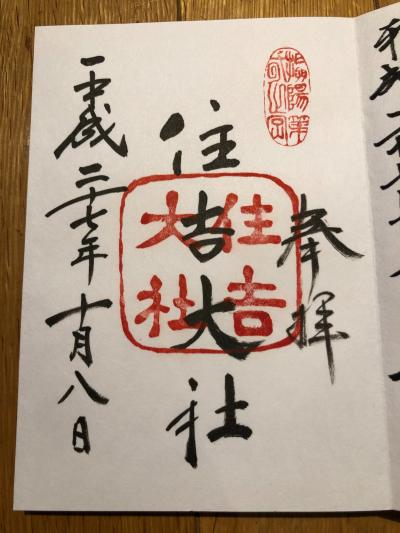 奉拝
住吉大社
住吉大社
平成二十七年十月八日